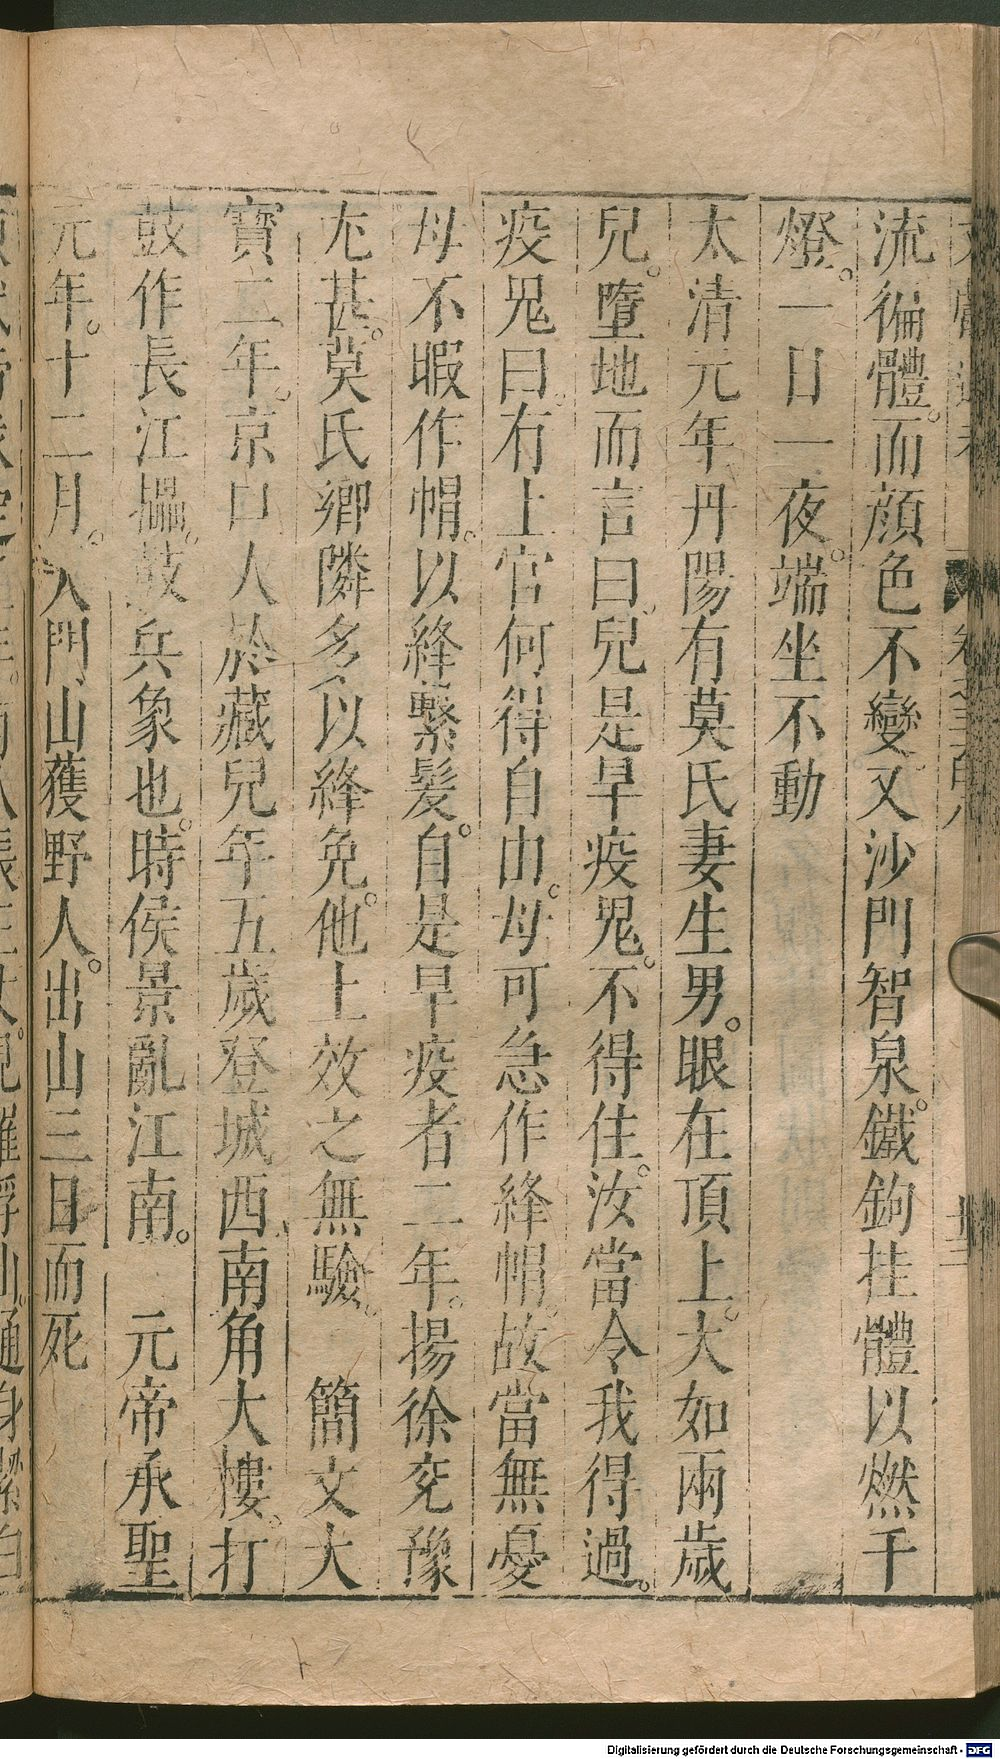 流徧體。而顔色不變。又沙門智泉。鐵鉤挂體以燃千
燈。一日一夜。端坐不動
太清元年丹陽有莫氏妻生男。眼在頂上。大如兩歲
兒。墮地而言曰。兒是旱疫鬼。不得住。汝當令我得過。
疫鬼曰。有上官何得自由。母可急作絳帽。故當無憂
母不暇作帽。以絳繫髮。自是旱疫者二年。揚徐兗豫
尤甚。莫氏鄉隣多以絳免。他土效之無驗。　簡文大
寶二年。京口人於藏兒年五歲登城西南角大樓。打
鼓作長江攂。鼓兵象也。時侯景亂江南。　元帝承聖
元年。十二月。入門山獲野人。出山三日而死
Digitalisierung gefördert durch die Deutsche Forschungsgemeinschaft - DFG